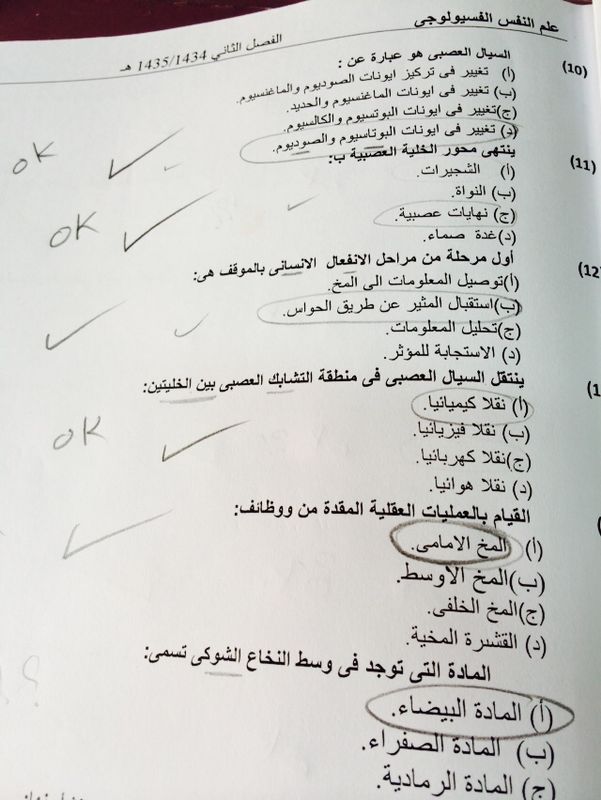 علم النفس الفسيولوجى
الفصل الثاني 1435/1434 هـ
(10) السيال العصبى هو عبارة عن :
(أ) تغيير فى تركيز ايونات الصوديوم والماغنسيوم.
(ب) تغيير فى ايونات الماغنسيوم والحديد.
(ج) تغيير فى ايونات البوتسيوم والكالسيوم.
(د) تغيير فى ايونات البوتاسيوم والصوديوم.
(11) ينتهى محور الخلية العصبية ب:
(أ) الشجيرات.
(ب) النواة.
(ج) نهايات عصبية.
(د) غدة صماء.
(12 أول مرحلة من مراحل الانفعال الانسانى بالموقف هى:
(أ) توصيل المعلومات الى المخ.
(ب) استقبال المثير عن طريق الحواس.
(ج) تحليل المعلومات.
(د) الاستجابة للمؤثر.
ينتقل السيال العصبى فى منطقة التشابك العصبى بين الخليتين:
(أ) نقلا كيميائيا.
(ب) نقلا فيزيائيا.
(ج) نقلا كهربائيا.
(د) نقلا هوائيا.
القيام بالعمليات العقلية المقدة من ووظائف:
(أ) المخ الامامى.
(ب) المخ الاوسط.
(ج) المخ الخلفى.
(د) القشرة المخية.
المادة التى توجد فى وسط النخاع الشوكى تسمى:
(أ) المادة البيضاء.
(ب) المادة الصفراء.
(ج) المادة الرمادية.
OK
OK
OK